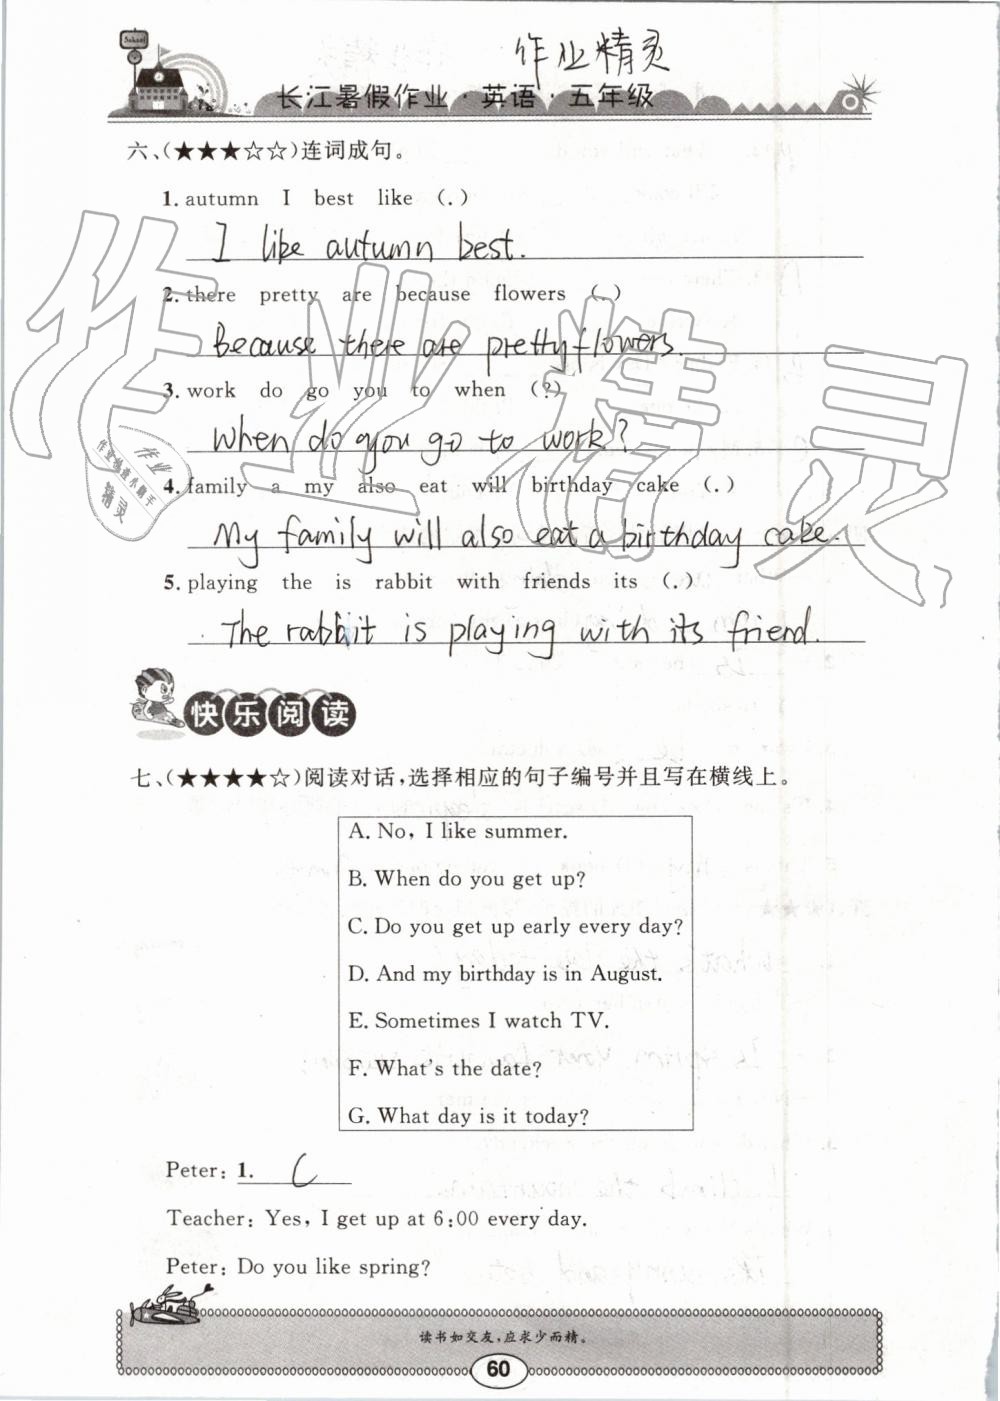 School
作业精灵
长江暑假作业·英语·五年级
六、(★★★☆☆)连词成句。
1. autumn I best like (.)
I like autumn best.
2. there pretty are because flowers (.)
Because there are pretty flowers.
3. work do go you to when (?)
When do you go to work?
4. family a my also eat will birthday cake (.)
My family will also eat a birthday cake.
5. playing the is rabbit with friends its (.)
The rabbit is playing with its friend.
作业精灵
作业快查小助手
作业
精灵
快乐阅读
七、(★★★★☆)阅读对话,选择相应的句子编号并且写在横线上。
A. No, I like summer.
B. When do you get up?
C. Do you get up early every day?
D. And my birthday is in August.
E. Sometimes I watch TV.
F. What's the date?
G. What day is it today?
Peter: 1. C
Teacher: Yes, I get up at 6:00 every day.
Peter: Do you like spring?
读书如交友,应求少而精。
60